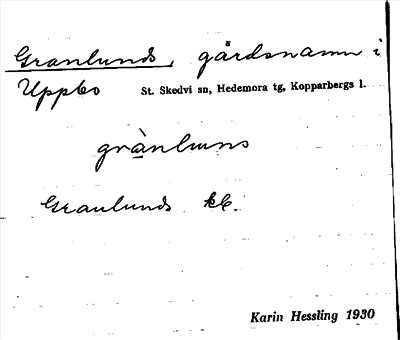 Granlunds, gårdsnamn i
Uppbo St. Skedvi sn, Hedemora tg, Kopparbergs l.
gràn̲luns
Granlunds kb.
Karin Hessling 1930